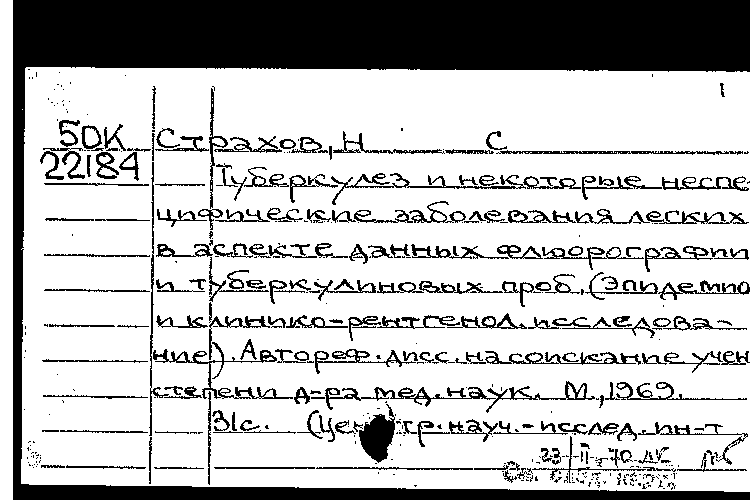 1
5DK Страхов, Н С
22184 Туберкулез и некоторые неспе
цифические заболевания легких
в аспекте данных флюорографии
и туберкулиновых проб. (Эпидемио
и клинико-рентгенол. исследова-
ние). Автореф. дисс. на соискание учен
степени д-ра мед. наук. М., 1969.
31с. (Центр. науч.-исслед. ин-т
23/II-70 ЛК
См. след.